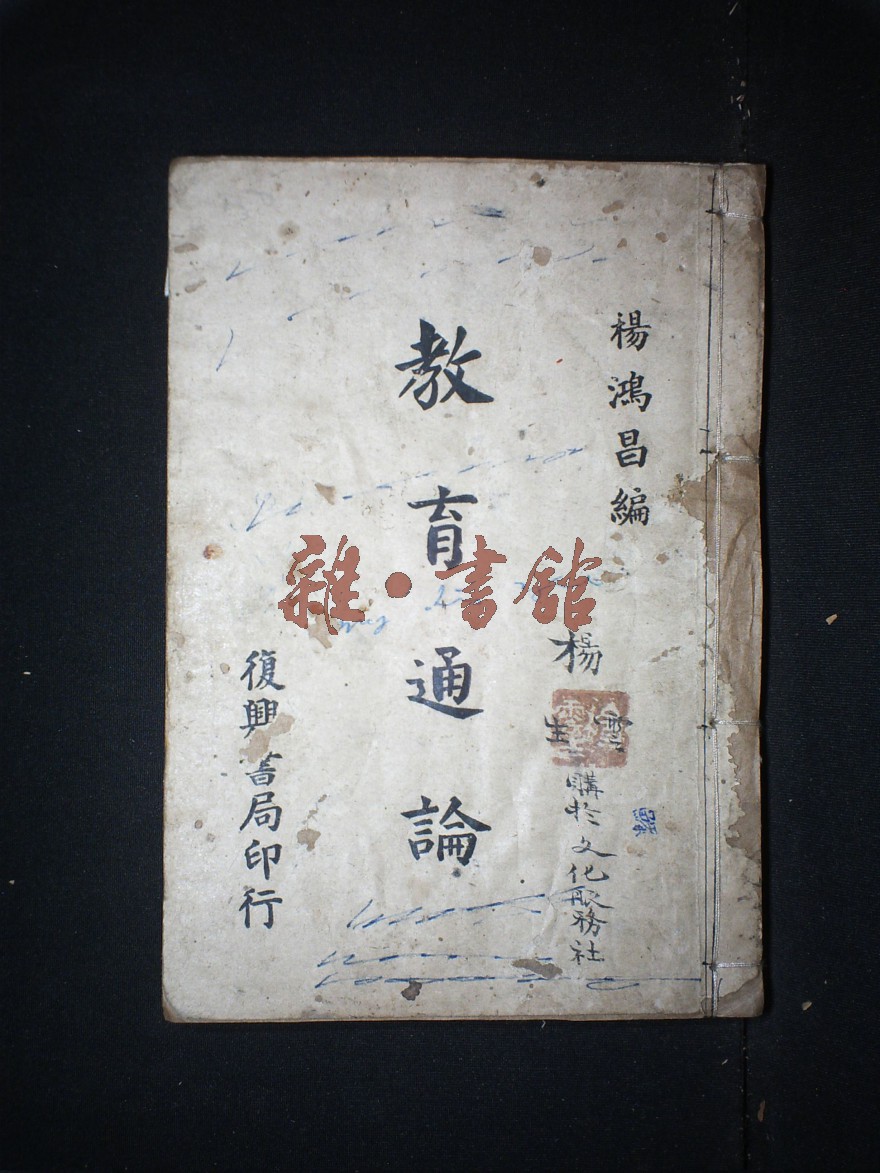 楊鴻昌編
教育通論
復興書局印行
楊雲生
購於文化服務社
雜·書館